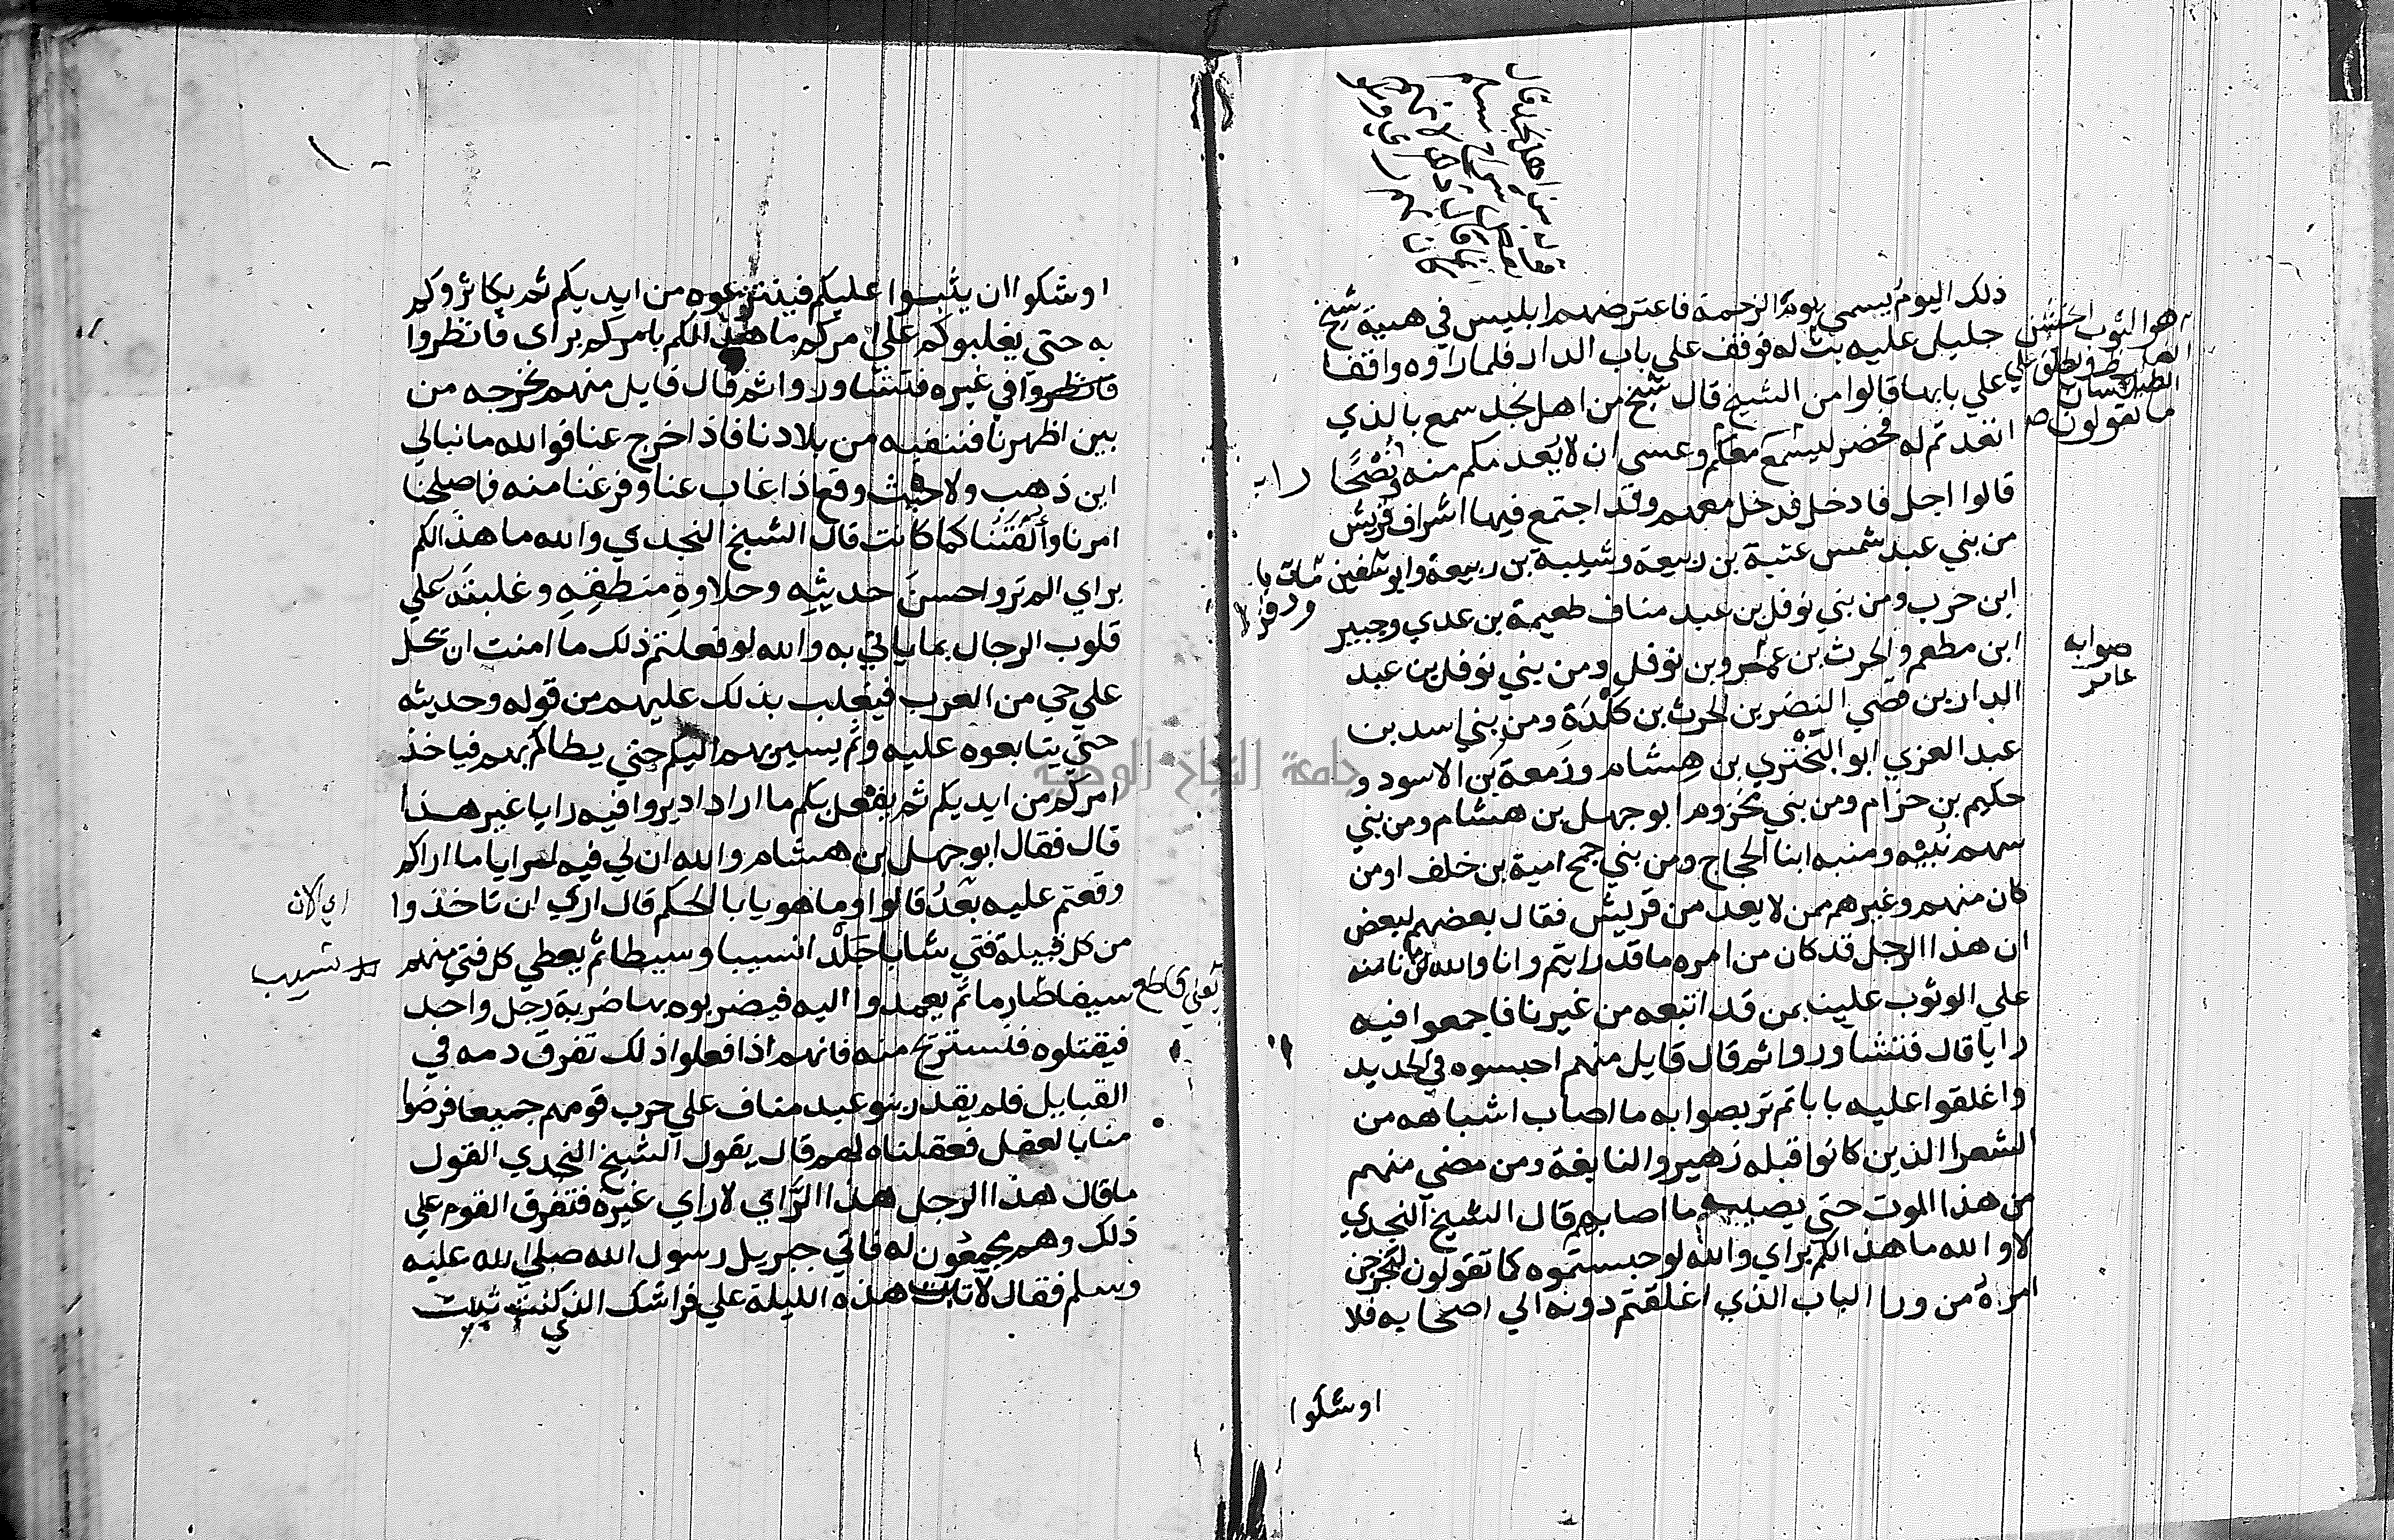 ذلك اليوم يسمي يوم الزحمة فاعترضهم ابليس في هيية شيخ
جليل عليه بت له فوقف علي باب الدار فلما راوه واقفا
علي بابها قالوا من الشيخ قال شيخ من اهل نجد سمع بالذي
اتعدتم له فحضر ليسمع معكم وعسي ان لا يعدمكم منه نصحا
قالوا اجل فادخل فدخل معهم وقد اجتمع فيها اشراف قريش
من بني عبد شمس عتبة بن ربيعة وشيبة بن ربيعة وابو سفين
ابن حرب ومن بني نوفل بن عبد مناف طعيمة بن عدي وجبير
ابن مطعم والحرث بن عمرو بن نوفل ومن بني نوفل بن عبد
الدار بن قصي النضر بن الحرث بن كلدة ومن بني اسد بن
عبد العزي ابو البختري بن هشام وزمعة بن الاسود و
حكيم بن حزام ومن بني مخزوم ابو جهل بن هشام ومن بني
سهم نبيه ومنبه ابنا الحجاج ومن بني جمح امية بن خلف اومن
كان منهم وغيرهم ممن لا يعد من قريش فقال بعضهم لبعض
ان هذا الرجل قد كان من امره ما قد رايتم وانا والله ما نامنه
علي الوثوب علينا بمن قد اتبعه من غيرنا فاجمعوا فيه
رايا قال فتشاوروا ثم قال قايل منهم احبسوه في الحديد
واغلقوا عليه بابا ثم تربصوا به ما اصاب اشباهه من
الشعرا الذين كانوا قبله زهير والنابغة ومن مضي منهم
من هذا الموت حتي يصيبه ما اصابهم قال الشيخ النجدي
لا والله ما هذا لكم براي والله لو حبستموه كما تقولون لتخرجن
امرة من ورا الباب الذي اغلقتم دونه الي اصحابه فلا
اوشكوا
هو الثوب الخشن
ما تقولون
صوابه
عامر
اوشكوا ان يثبوا عليكم فينتزعوه من ايديكم ثم يكاثروكم
به حتي يغلبوكم علي امركم ما هذا لكم بامركم براي فانظروا
فانظروا في غيره فتشاوروا ثم قال قايل منهم نخرجه من
بين اظهرنا فننفيه من بلادنا فاذا خرج عنا فوالله ما نبالي
اين ذهب ولا حيث وقع اذا غاب عنا وفرغنا منه فاصلحنا
امرنا وألفتنا كما كانت قال الشيخ النجدي والله ما هذا لكم
براي الم تروا حسن حديثه وحلاوة منطقه وغلبته علي
قلوب الرجال بما ياتي به والله لو فعلتم ذلك ما امنت ان يحل
علي حي من العرب فيغلب بذلك عليهم من قوله وحديثه
حتي يتابعوه عليه وثم يسير بهم اليكم حتي يطاكم بهم فياخذ
امركم من ايديكم ثم يفعل بكم ما اراد اديروا فيه رايا غير هذا
قال فقال ابو جهل بن هشام والله ان لي فيه لرايا ما اراكم
وقعتم عليه بعد قالوا وما هو يا با الحكم قال اري ان تاخذوا
من كل قبيلة فتي شابا جلدا نسيبا وسيطا ثم يعطي كل فتي منهم
سيفا صارما ثم يعمدوا اليه فيضربوه بها ضربة رجل واحد
فيقتلوه فنستريح منه فانهم اذا فعلوا ذلك تفرق دمه في
القبايل فلم يقدر بنو عبد مناف علي حرب قومهم جميعا فرضوا
منا بالعقل فعقلناه لهم قال يقول الشيخ النجدي القول
ما قال هذا الرجل هذا الراي لا راي غيره فتفرق القوم علي
ذلك وهم مجمعون له فاتي جبريل رسول الله صلي الله عليه
وسلم فقال لا تبت هذه الليلة علي فراشك الذي كنت تبيت
اي الان
يعني قاطع
جامعة النجاح الوطنية